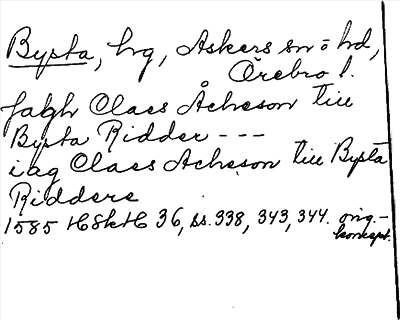 Bysta, hg, Askers sn o hd,
Örebro l.
Jagh Claes Åcheson till
Bysta Ridder ---
iag Claes Acheson till Bysta
Riddere
1585 HSkH 36, ss. 338, 343, 344. orig.-
koncept.